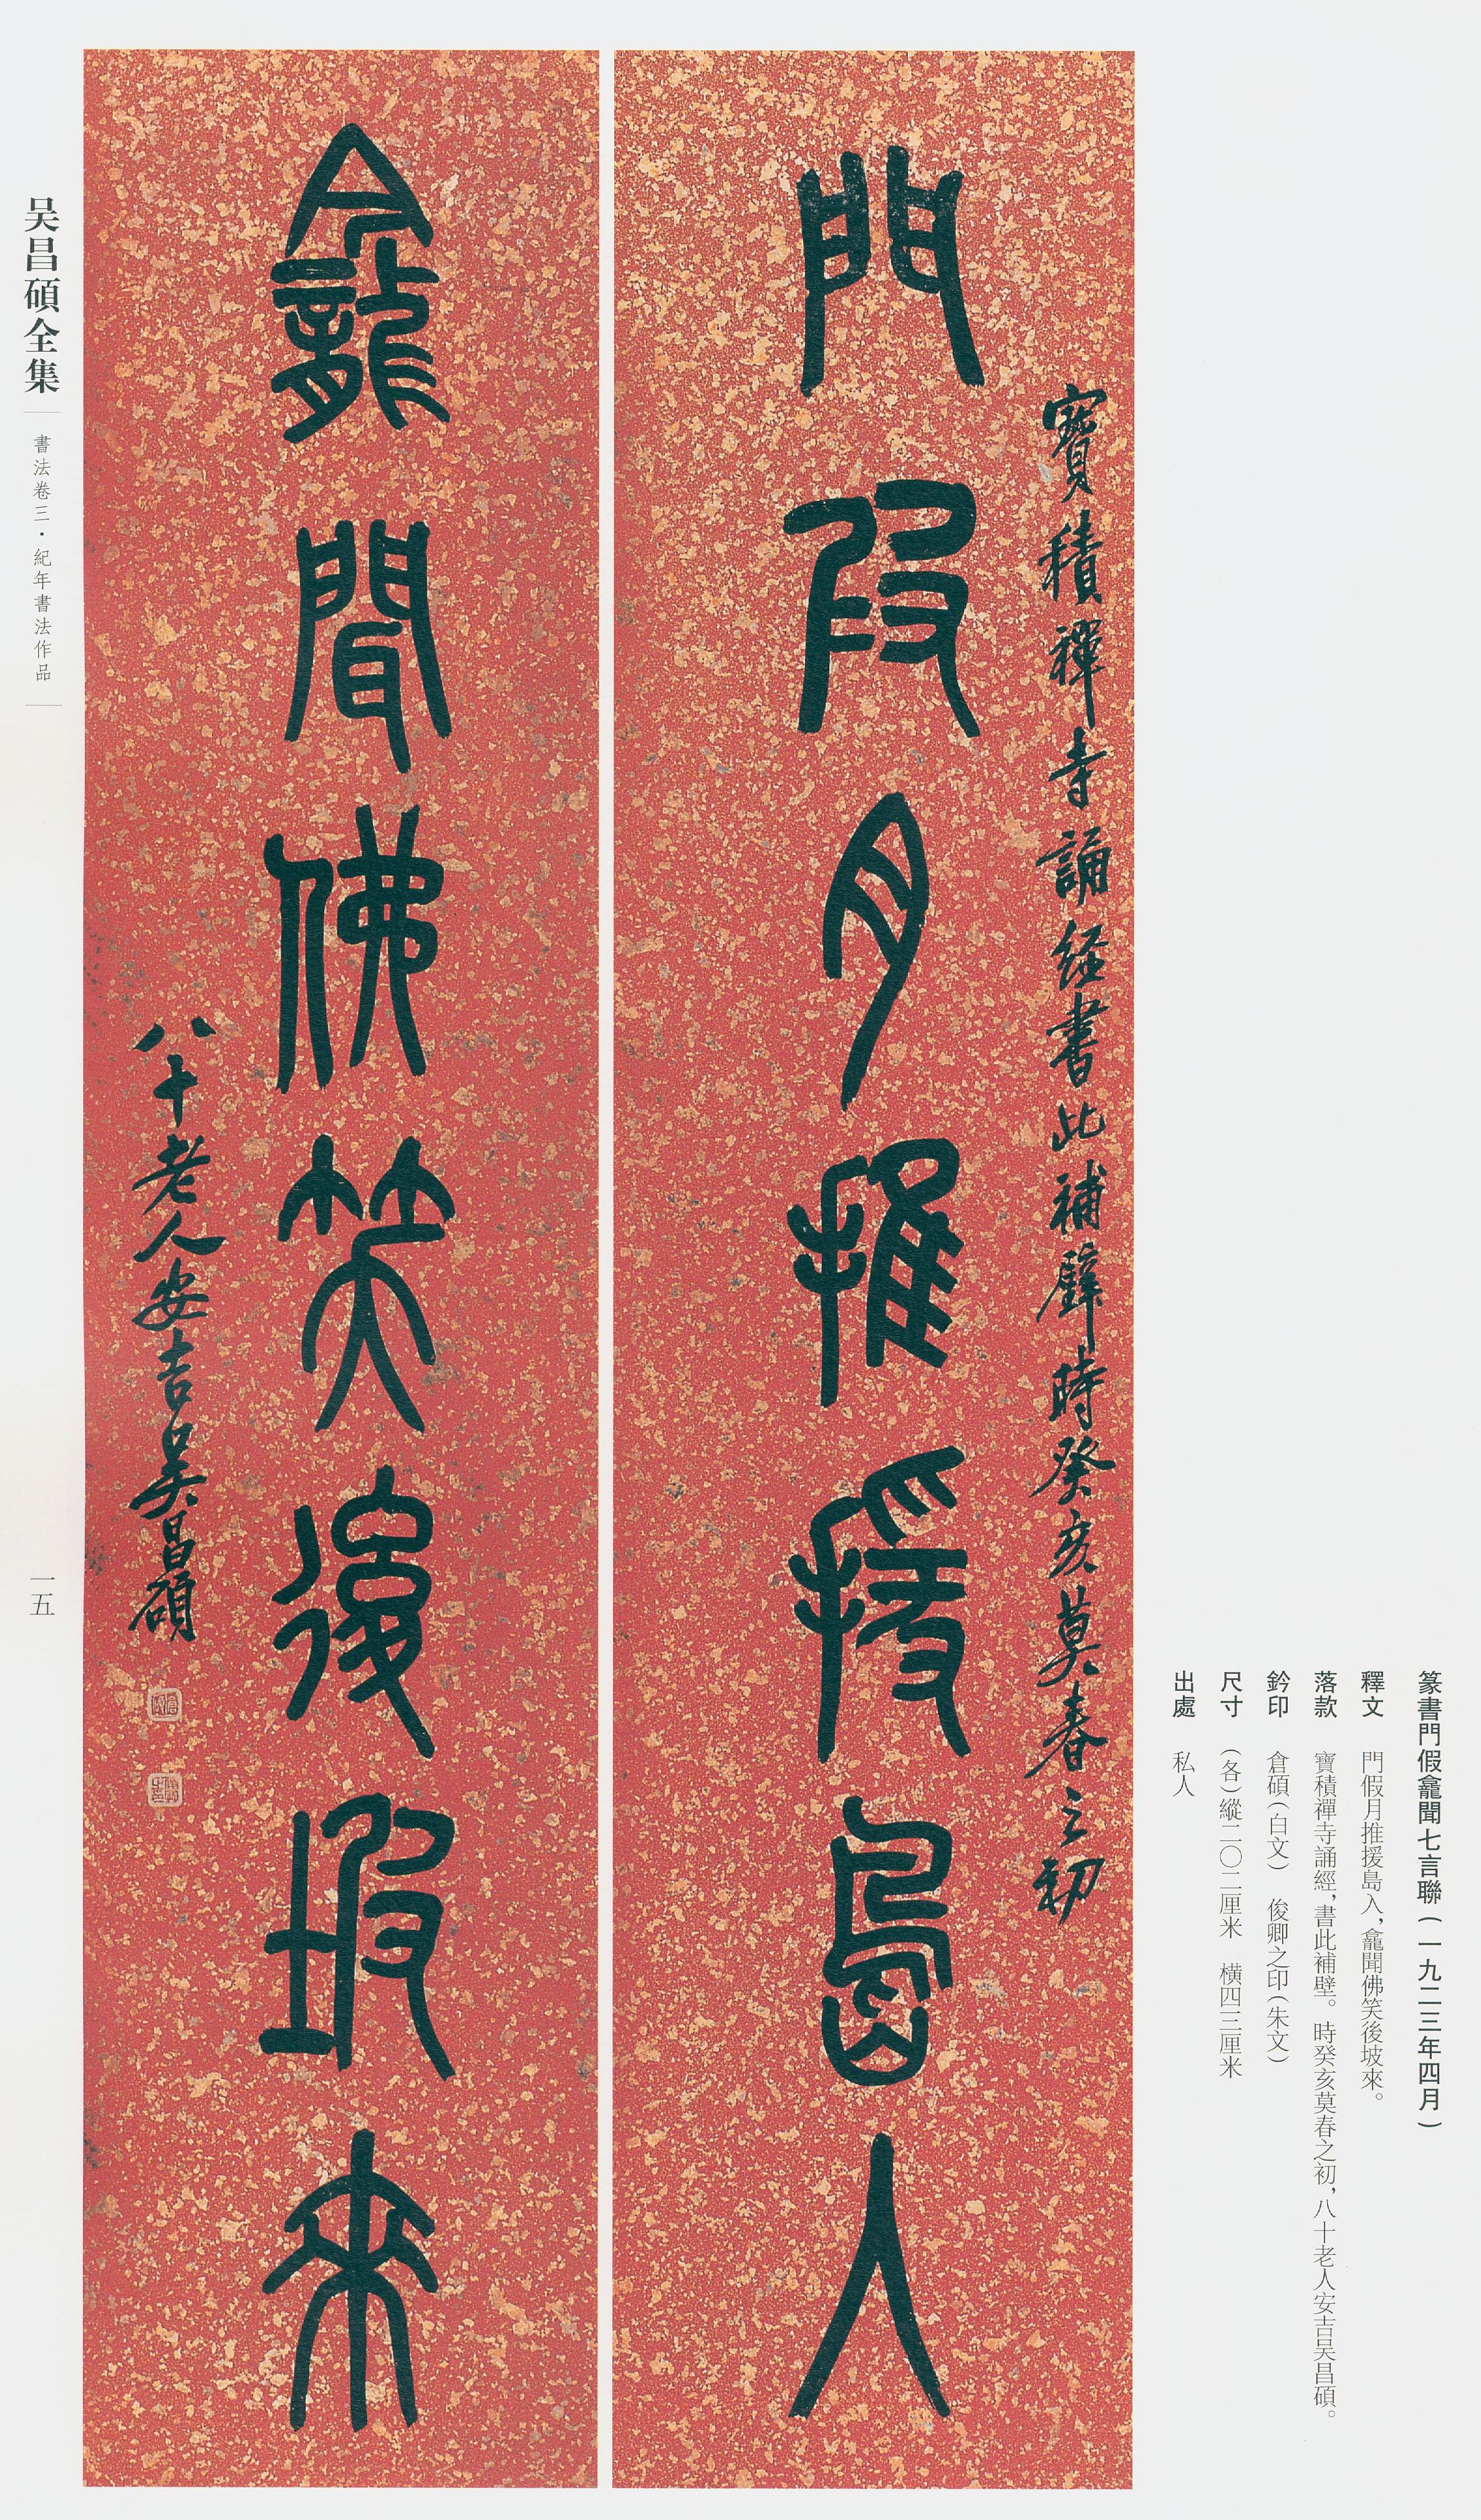 篆書門假龕聞七言聯（一九二三年四月）
釋文　門假月推援島入，龕聞佛笑後坡來。
落款　寶積禪寺誦經，書此補壁。時癸亥莫春之初，八十老人安吉吴昌碩。
鈐印　倉碩（白文）　俊卿之印（朱文）
尺寸　（各）縱二〇二厘米　橫四三厘米
出處　私人
寶積禪寺誦經書此補壁時癸亥莫春之初
門叚月推援島入
龕聞佛笑後坡來
八十老人安吉吳昌碩
吴昌碩全集
書法卷三·紀年書法作品
一五